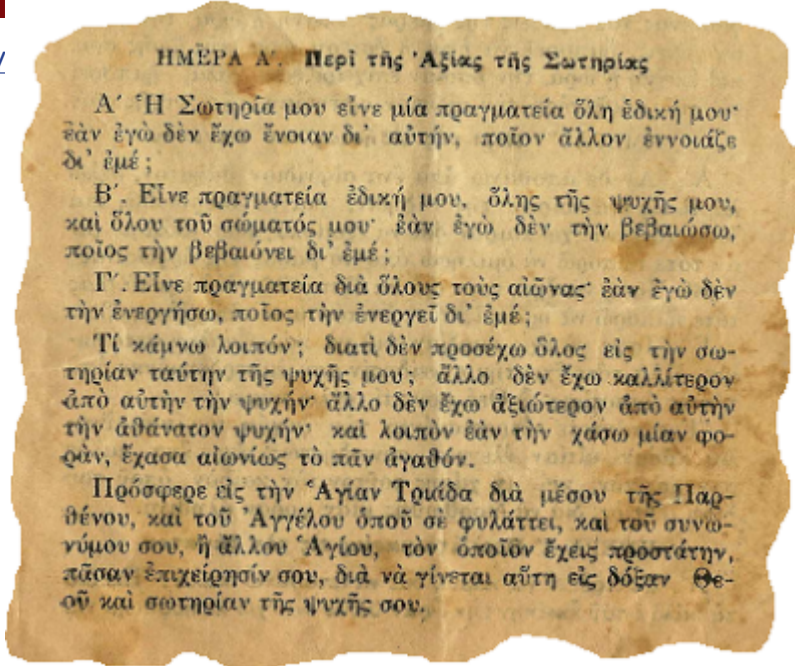 ΗΜΕΡΑ Α΄. Περὶ τῆς Ἀξίας τῆς Σωτηρίας
Α΄ Ἡ Σωτηρία μου εἶνε μία πραγματεία ὅλη ἐδική μου·
ἐὰν ἐγὼ δὲν ἔχω ἔνοιαν δι᾽ αὐτήν, ποῖον ἄλλον ἐννοιάζε
δι᾽ ἐμέ;
Β΄. Εἶνε πραγματεία ἐδική μου, ὅλης τῆς ψυχῆς μου,
καὶ ὅλου τοῦ σώματός μου· ἐὰν ἐγὼ δὲν τὴν βεβαιώσω,
ποῖος τὴν βεβαιόνει δι᾽ ἐμέ;
Γ΄. Εἶνε πραγματεία διὰ ὅλους τοὺς αἰῶνας· ἐὰν ἐγὼ δὲν
τὴν ἐνεργήσω, ποῖος τὴν ἐνεργεῖ δι᾽ ἐμέ;
Τί κάμνω λοιπόν; διατὶ δὲν προσέχω ὅλος εἰς τὴν σω-
τηρίαν ταύτην τῆς ψυχῆς μου; ἄλλο δὲν ἔχω καλλίτερον
ἀπὸ αὐτὴν τὴν ψυχήν· ἄλλο δὲν ἔχω ἀξιώτερον ἀπὸ αὐτὴν
τὴν ἀθάνατον ψυχήν· καὶ λοιπὸν ἐὰν τὴν χάσω μίαν φο-
ρὰν, ἔχασα αἰωνίως τὸ πᾶν ἀγαθόν.
Πρόσφερε εἰς τὴν Ἁγίαν Τριάδα διὰ μέσου τῆς Παρ-
θένου, καὶ τοῦ Ἀγγέλου ὁποῦ σὲ φυλάττει, καὶ τοῦ συνω-
νύμου σου, ἢ ἄλλου Ἁγίου, τὸν ὁποῖον ἔχεις προστάτην,
πᾶσαν ἐπιχείρησίν σου, διὰ νὰ γίνεται αὕτη εἰς δόξαν Θε-
οῦ καὶ σωτηρίαν τῆς ψυχῆς σου.